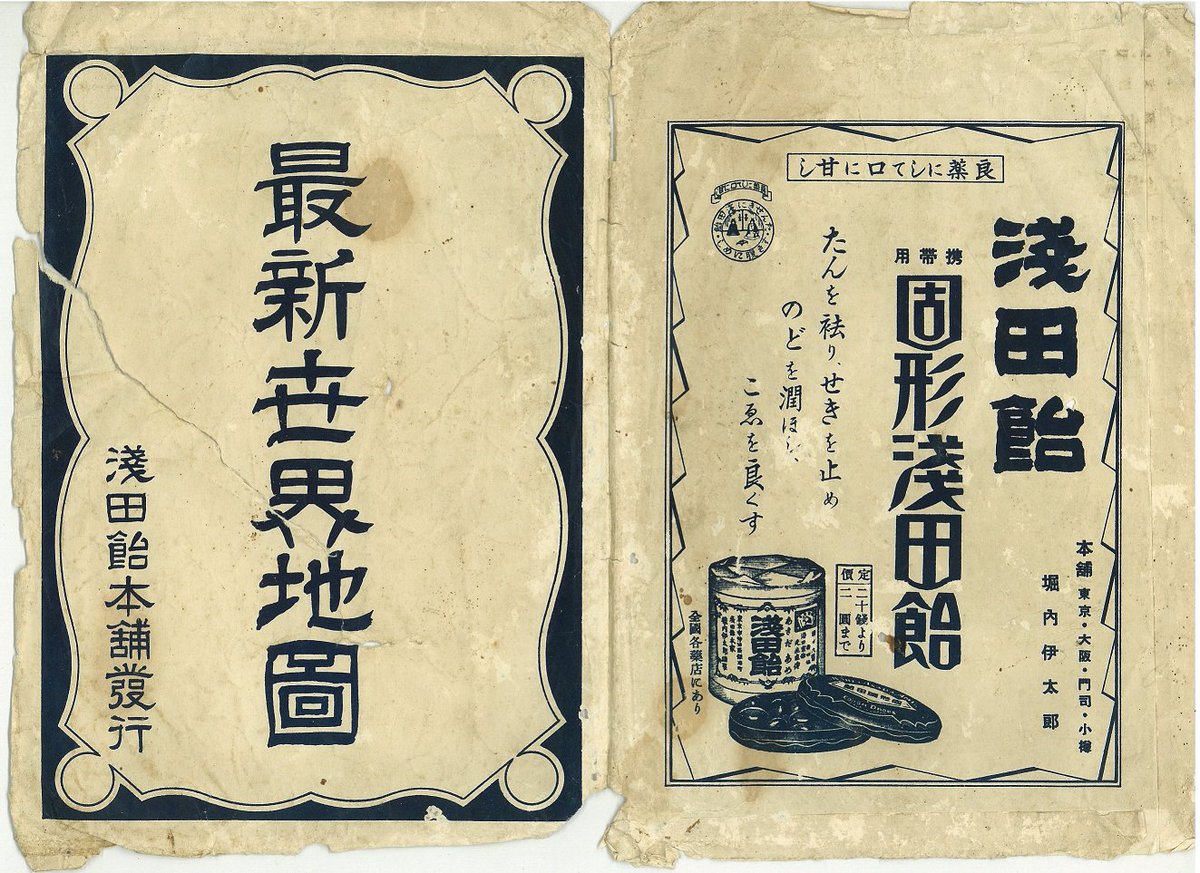 最新世界地圖
淺田飴本舖發行
良薬にしてロに甘し
淺田飴
携帯用
固形淺田飴
たんを祛り、せきを止め
のどを潤ほし、
こゑを良くす
本舖 東京・大阪・門司・小樽
堀内伊太郎
定價
二十錢より
二圓まで
全國各藥店にあり
淺田飴
あさだあめ